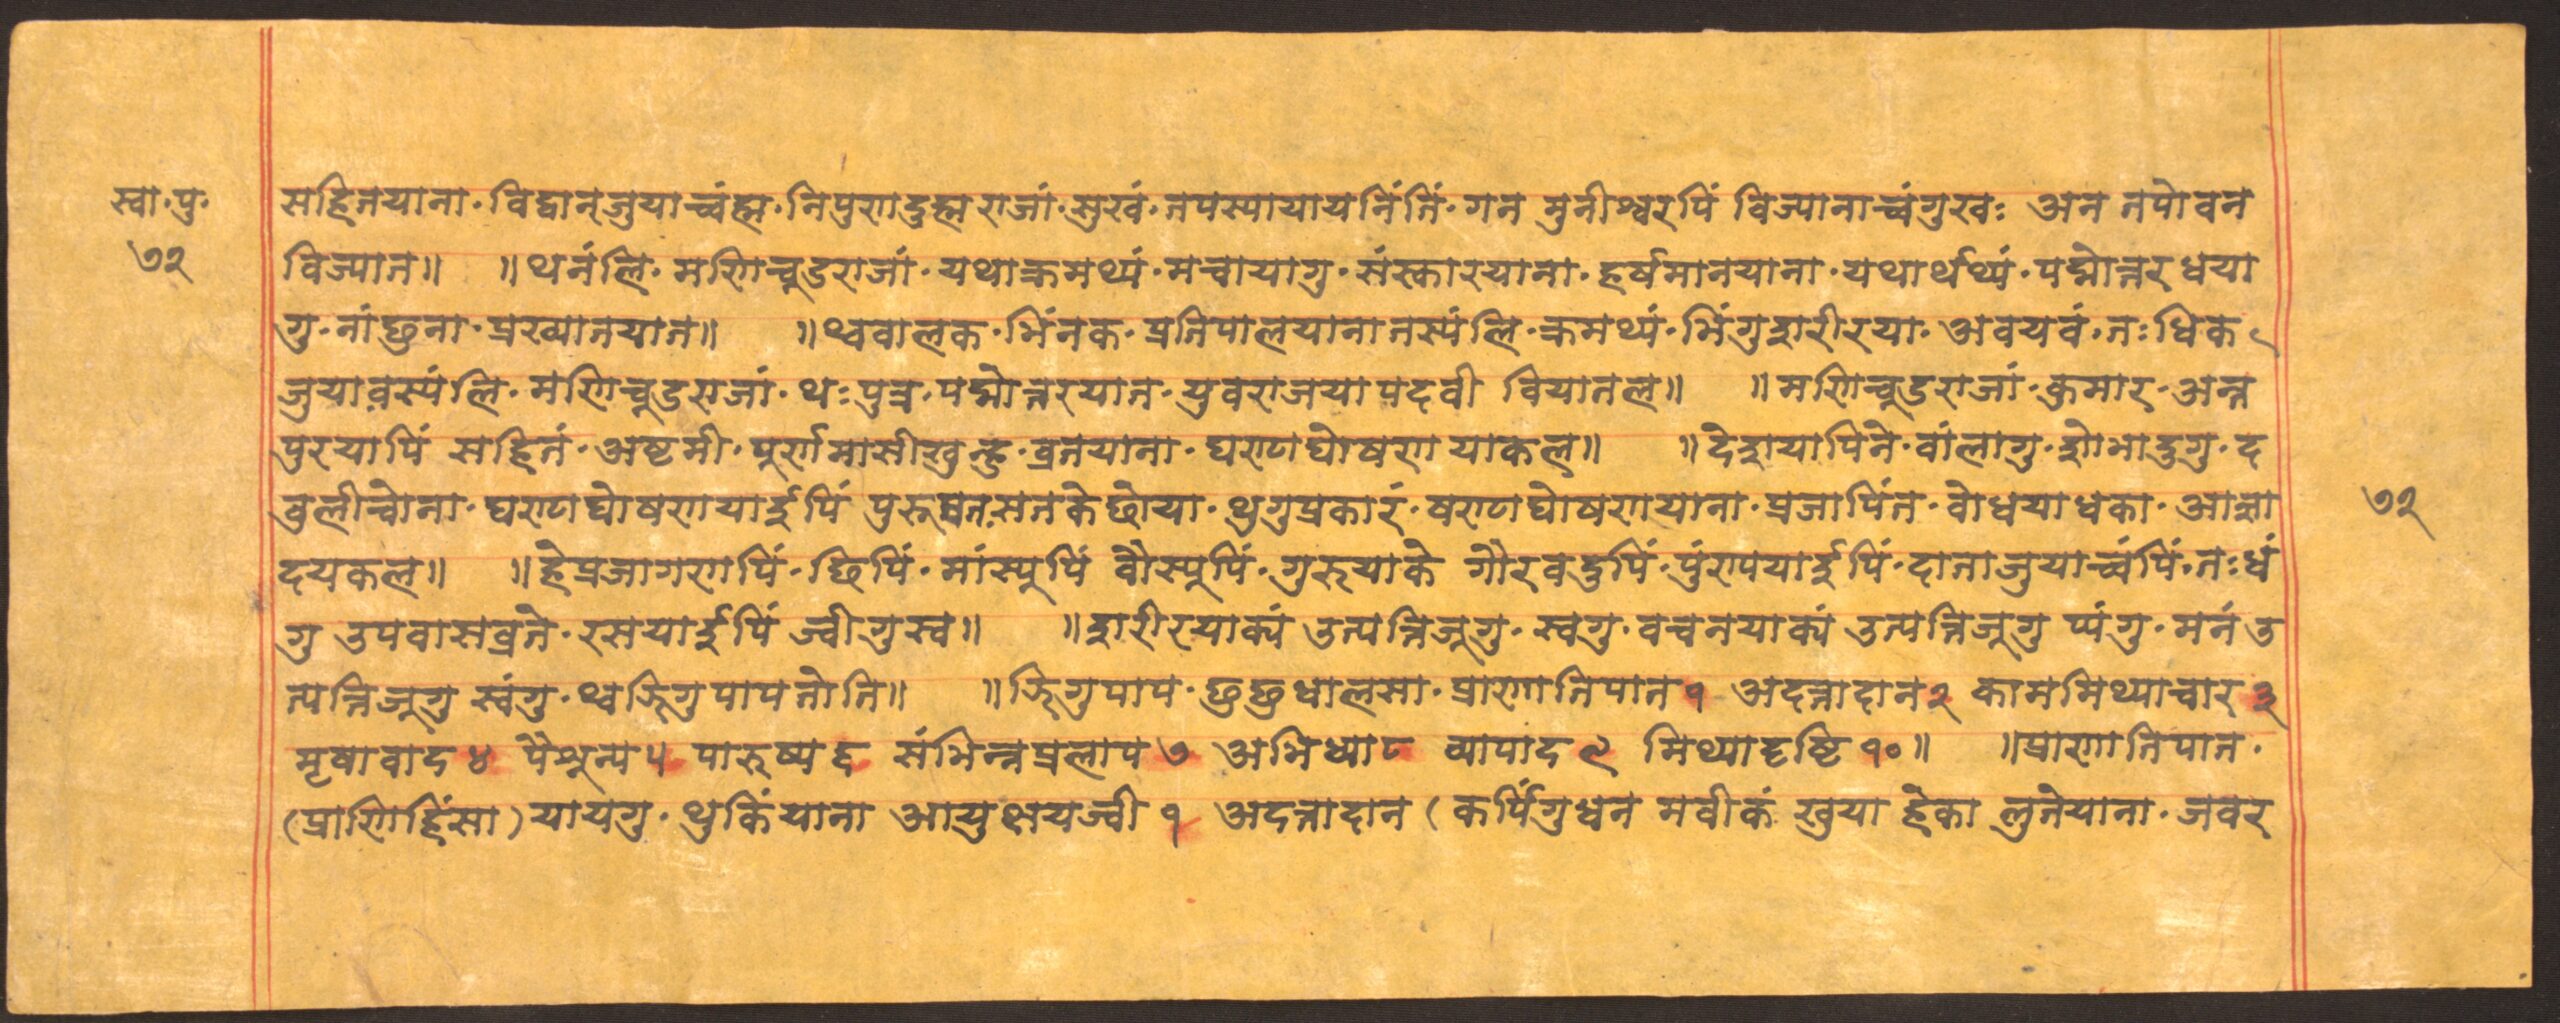 स्वा·पु·
७२
सहितयाना·विद्वान्जुयाच्वंह्म·निपुणदुह्मराजां·सुखं·तपस्यायायनिंतिं·गन मुनीश्वरपिं विज्यानाच्वंगुखः अन तपोवन
विज्यात॥ ॥थनंलि·मणिचूडराजां·यथाक्रमथ्यं·मचायागु·संस्कारयाना·हर्षमानयाना·यथार्थथ्यं·पद्मोत्तरधया
गु·नांछुना·प्रख्यातयात॥ ॥थ्ववालक·भिंनक·प्रतिपालयानातस्यंलि·क्रमथ्यं·भिंगुशरीरया·अवयवं·तःधिक
जुयावस्यंलि·मणिचूडराजां·थःपुत्र·पद्मोत्तरयात·युवराजयापदवी वियातल॥ ॥मणिचूडराजां·कुमार·अन्त
पुरयापिं सहितं·अष्टमी·पूर्णमासीखुन्हु·व्रतयाना·घण्टाघोषणा याकल॥ ॥देशयापिने·वांलागु·शोभादुगु·द
वुलीचोना·घण्टाघोषणायाईपिं पुरूषतसतकेछोया·थुगुप्रकारं·घण्टाघोषणायाना·प्रजापिंत·वोधयाधका·आज्ञा
दयकल॥ ॥हेप्रजागणपिं·छिपिं·मांस्यूपिं वौस्यूपिं·गुरूयाके गौरवदुपिं·पुंण्ययाईपिं·दाताजुयाच्वंपिं·तःधं
गु उपवासव्रते·रसयाईपिं ज्वीगुस्व॥ ॥शरीरयाक्यं उत्पत्तिजूगु·स्वगु·वचनयाक्यं उत्पत्तिजूगु प्यंगु·मनं उ
त्पत्तिजूगु स्वंगु·थ्वझिगुपापतोति॥ ॥झिगुपाप·छुछुधालसा·प्राणातिपात१ अदत्तादान२ काममिथ्याचार३
मृषावाद४ पैशून्य५ पारुष्य६ संभिन्नप्रलाप७ अभिध्या८ व्यापाद९ मिथ्यादृष्टि१०॥ ॥प्राणातिपात·
(प्राणिहिंसा)यायगु·थुकिंयाना आयुक्षयज्वी १ अदत्तादान (कर्पिंगुधन मवीकं खुया हेका लुतेयाना·जवर
७२